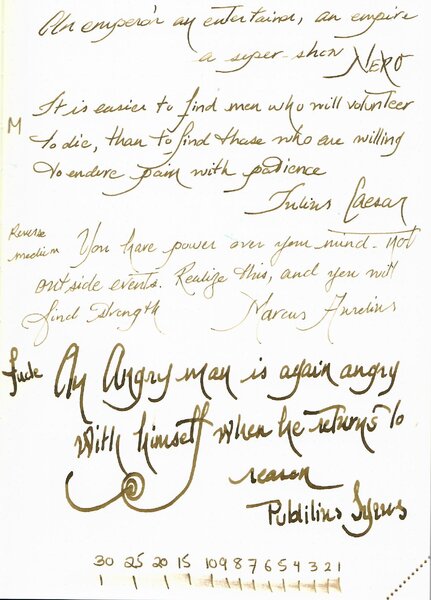 An emperor an entertainer, an empire
a super-show NERO
M It is easier to find men who will volunteer
to die, than to find those who are willing
to endure pain with patience
Julius Caesar
Reverse medium You have power over your mind - not
outside events. Realize this, and you will
find strength Marcus Aurelius
fude An Angry man is again angry
With himself when he returns to
reason
Publilius Syrus
30 25 20 15 10 9 8 7 6 5 4 3 2 1